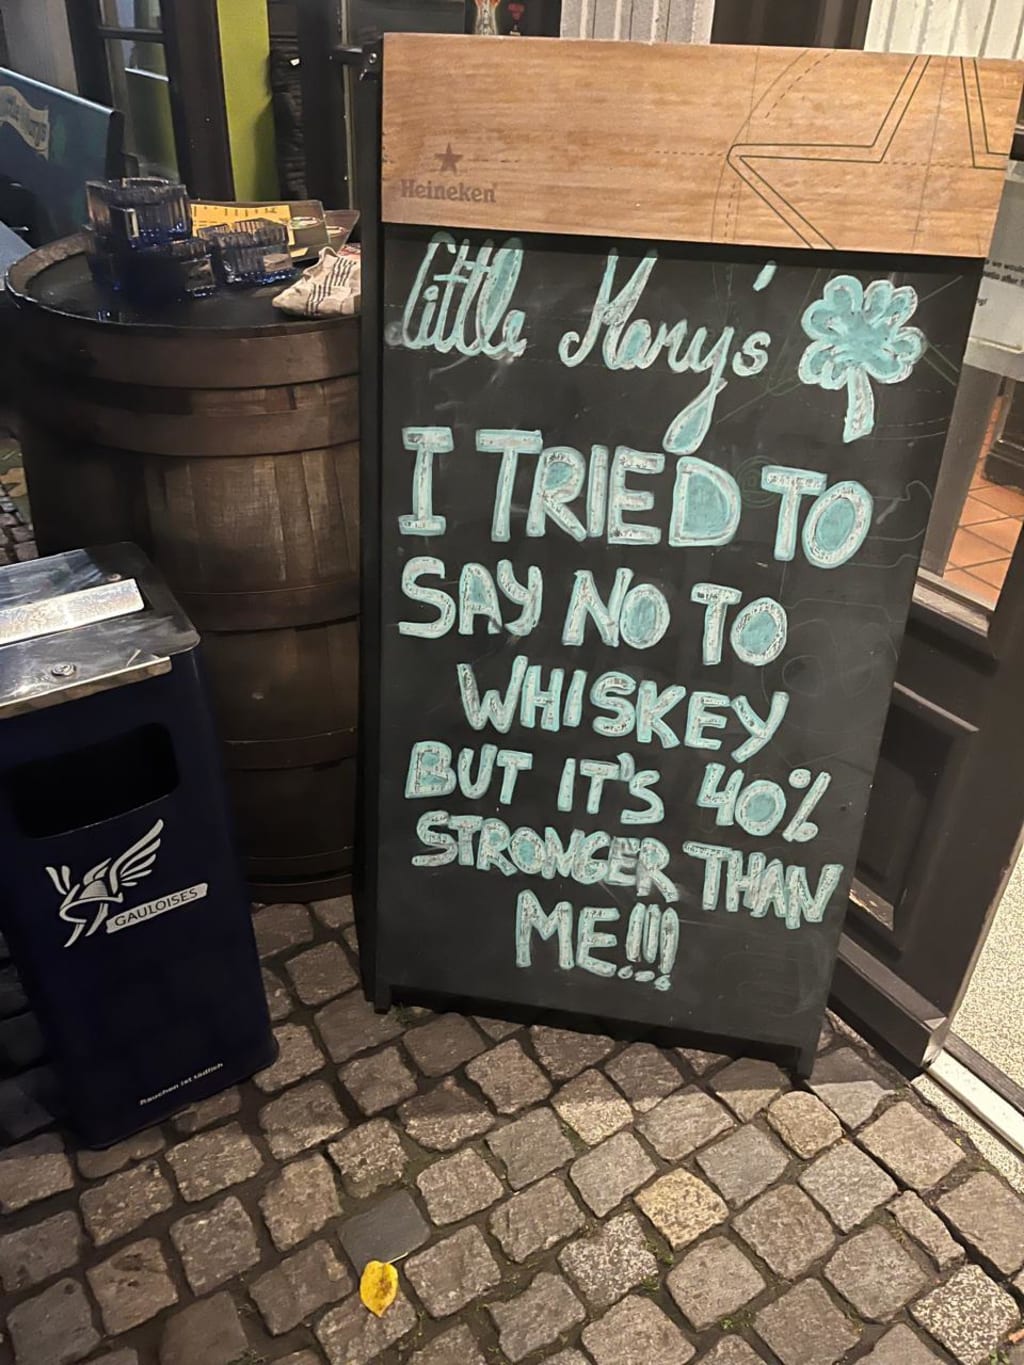 Heineken
little Mary's
I TRIED TO
SAY NO TO
WHISKEY
BUT IT'S 40%
STRONGER THAN
ME!!!
GAULOISES
Rauchen ist tödlich